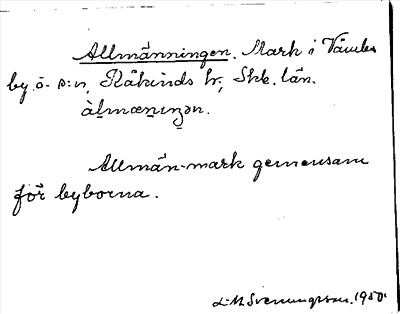 Allmänningen. Mark i Vånga
by o. s:n, Råkinds hr, Skb. län.
àlmænıŋən.
Allmän-mark gemensam
för byborna.
L. M. Svenungsson. 1950.